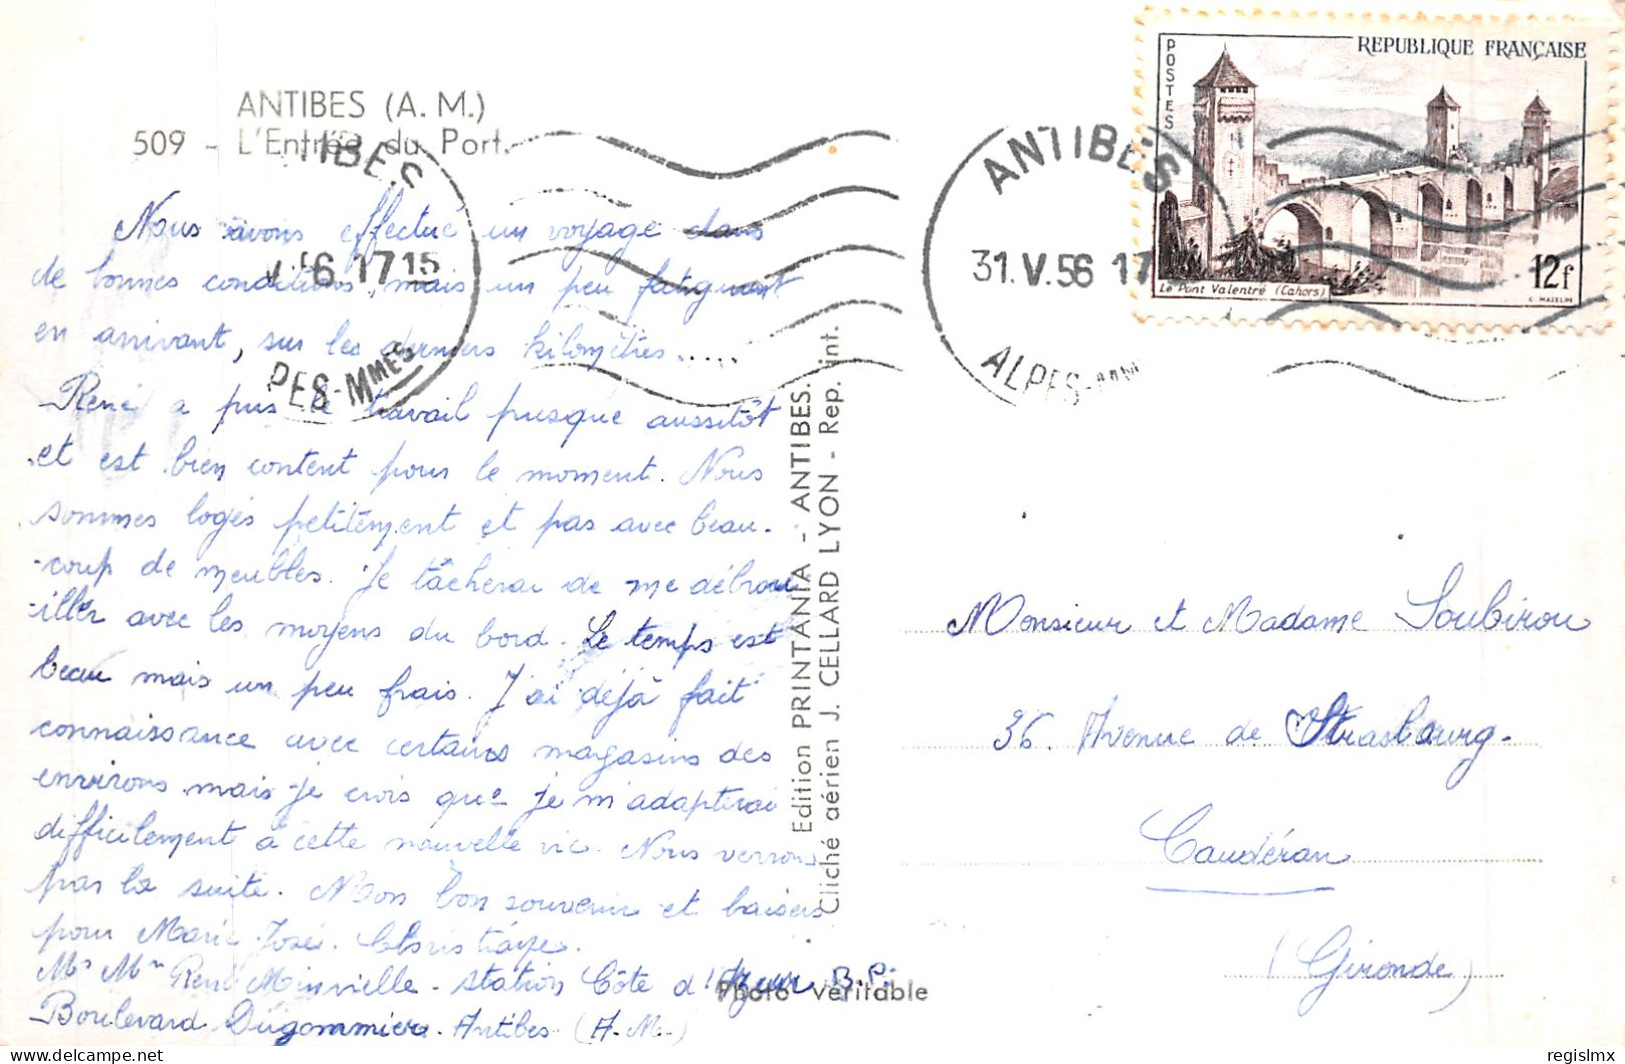 ANTIBES (A. M.)
509 - L'Entrée du Port.
TIBES
V 56 17 15
PES-MMES
ANTIBES
31.V.56 17
ALPES-MM
POSTES
REPUBLIQUE FRANÇAISE
Le Pont Valentré (Cahors)
12f
C. MAZELIN
Nous avons effectué un voyage dans
de bonnes conditions, mais un peu fatiguant
en arrivant, sur les derniers kilomètres.....
René a pris le travail presque aussitôt
et est bien content pour le moment. Nous
sommes logés petitement et pas avec beau-
-coup de meubles. Je tâcherai de me débrou
-iller avec les moyens du bord. Le temps est
beau mais un peu frais. J'ai déjà fait
connaissance avec certains magasins des
environs mais je crois que je m'adapterai
difficilement à cette nouvelle vie. Nous verrons
par la suite. Mon bon souvenir et baisers
pour Marie-José. Christiane.
Mr Mme René Minvielle - Station Côte d'Azur B.P.
Boulevard Dugommier. Antibes (A.M.)
Edition PRINTANIA - ANTIBES.
Cliché aérien J. CELLARD LYON - Rep. int.
Photo véritable
Monsieur et Madame Soubirou
36. Avenue de Strasbourg.
Caudéran
(Gironde)
Delcampe.net
regislmx